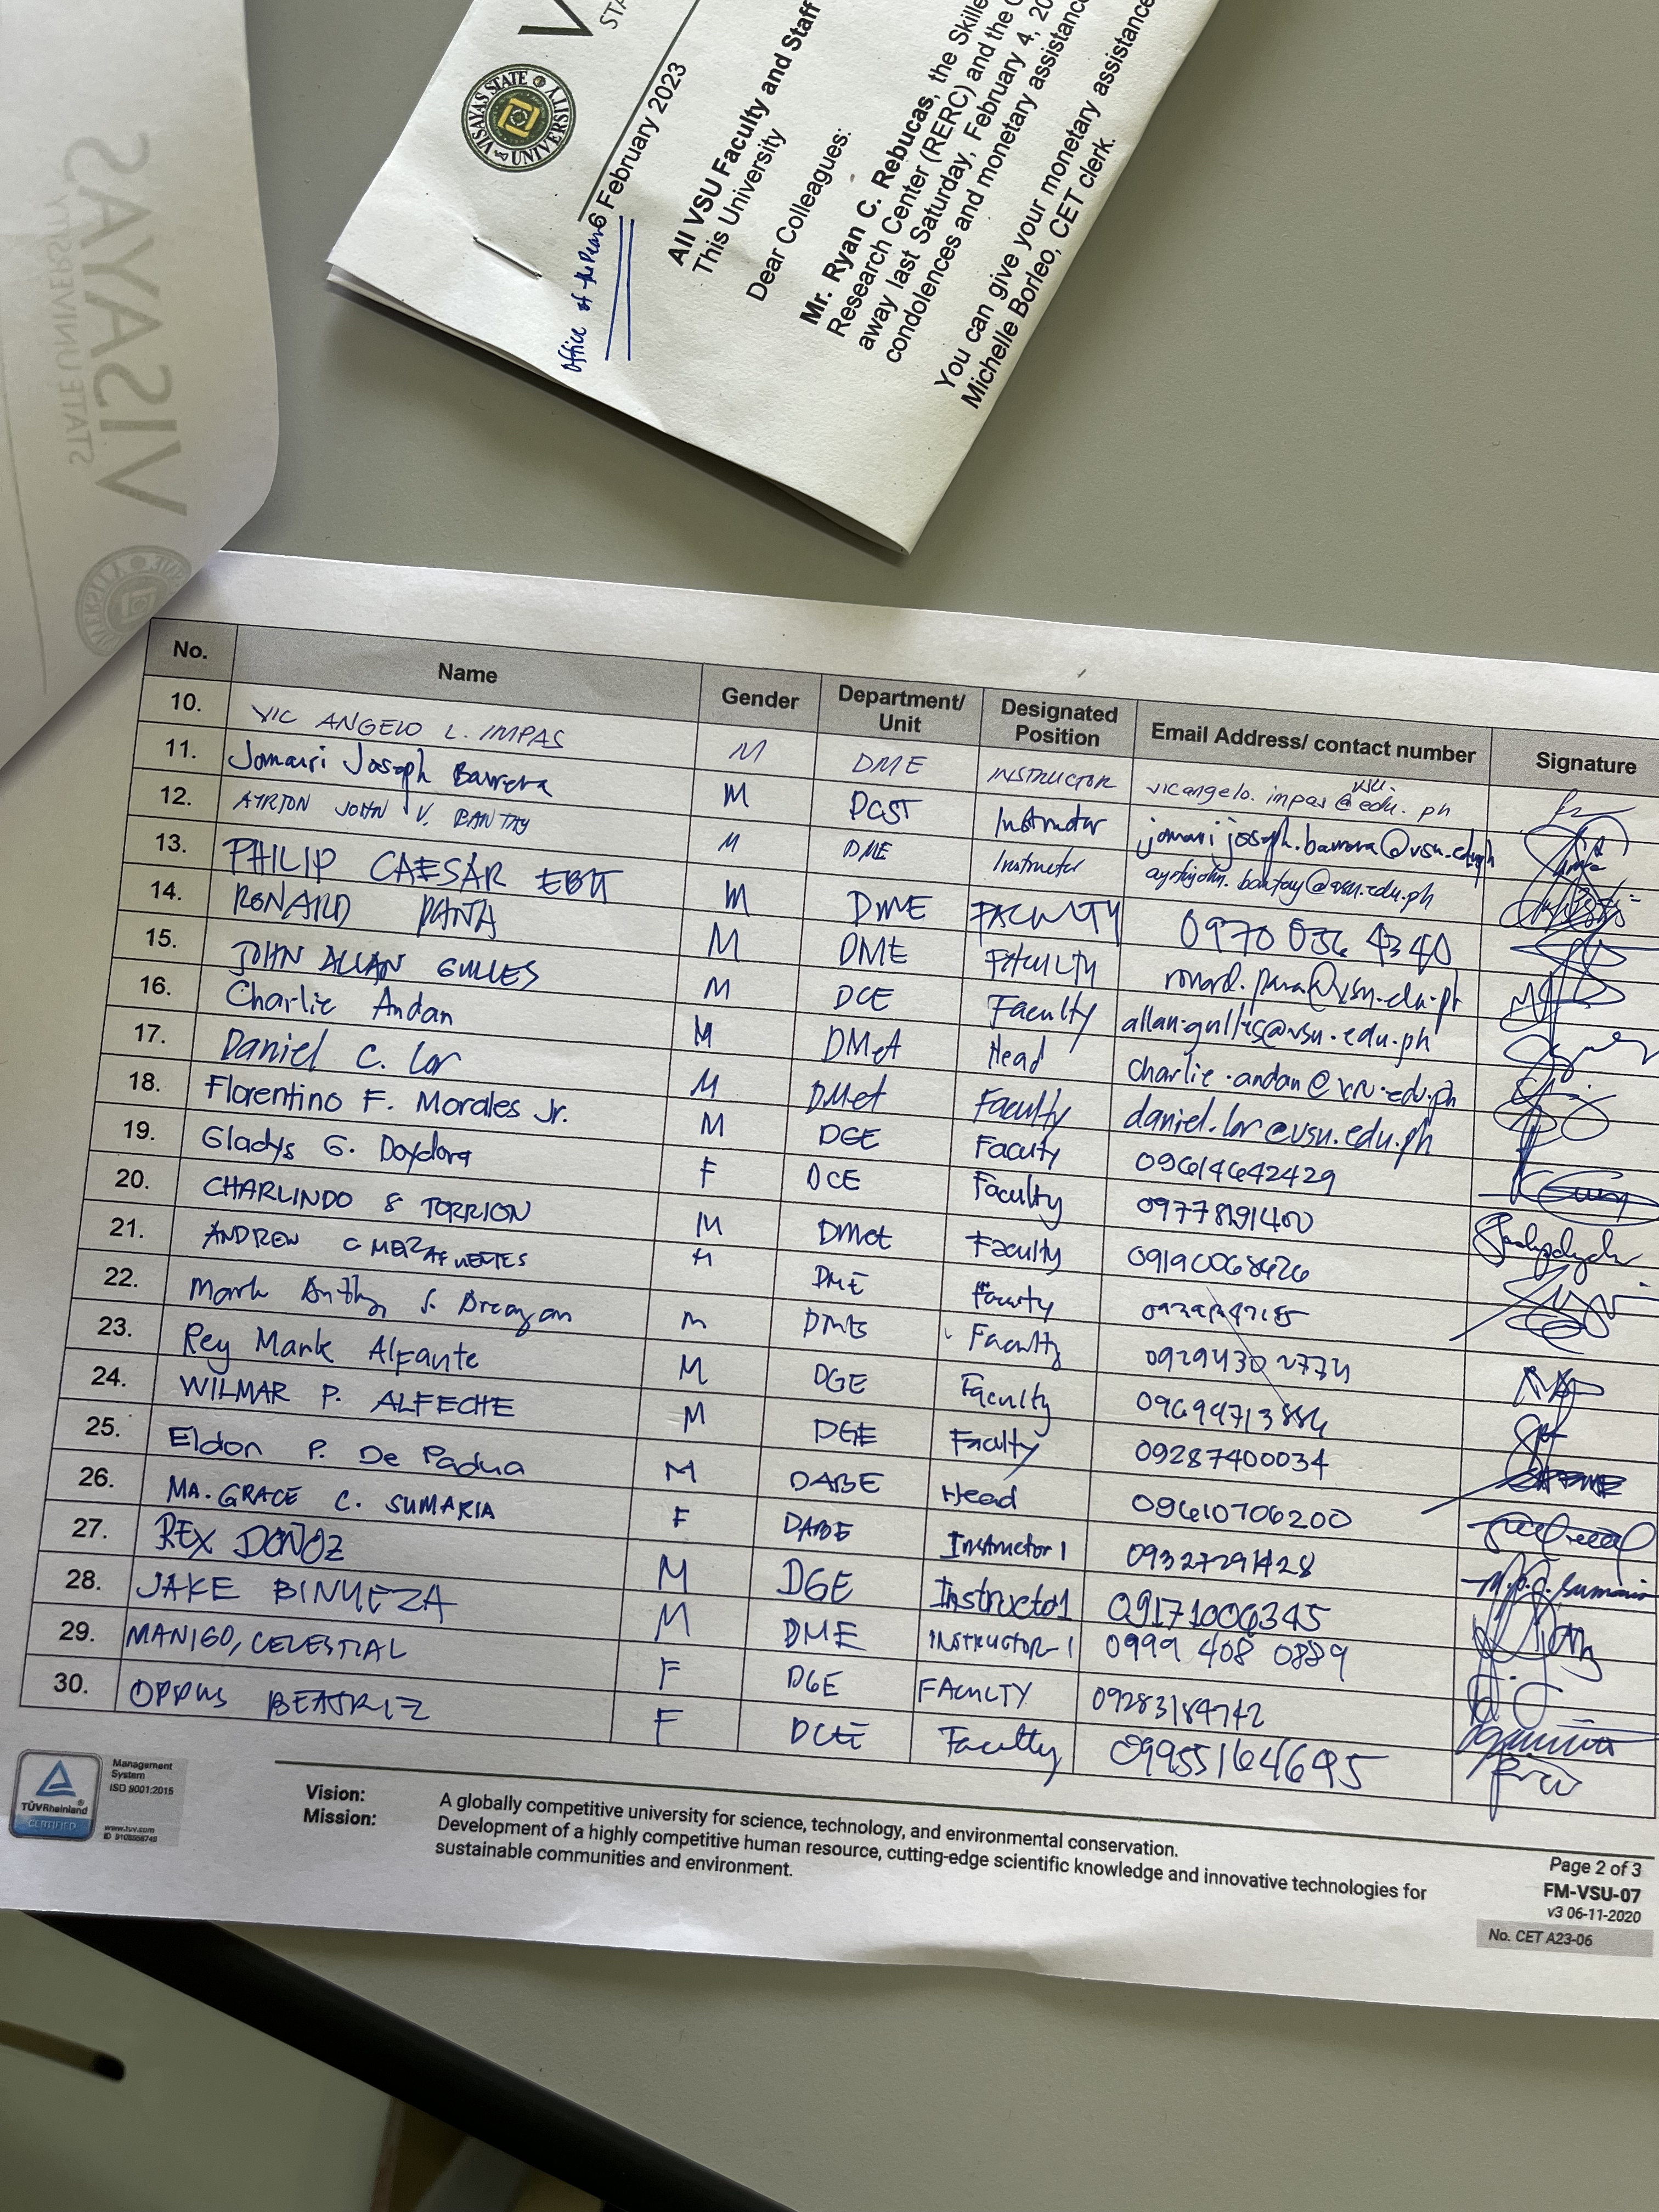 VISAYAS
STATE UNIVERSITY
VISAYAS STATE UNIVERSITY
Office of the Dean
6 February 2023
All VSU Faculty and Staff
This University
Dear Colleagues:
Mr. Ryan C. Rebucas, the Skille
Research Center (RERC) and the
away last Saturday, February 4, 20
condolences and monetary assistance
You can give your monetary assistance
Michelle Borleo, CET clerk.
No. Name Gender Department/ Unit Designated Position Email Address/ contact number Signature
10. VIC ANGELO L. IMPAS M DME INSTRUCTOR vicangelo.impas@vsu.edu.ph
11. Jomari Joseph Barrera M DCST Instructor jomarijoseph.barrera@vsu.edu.ph
12. AYRTON JOHN V. BANTAY M DME Instructor ayrtonjohn.bantay@vsu.edu.ph
13. PHILIP CAESAR EBIT M DME FACULTY 0970 036 4340
14. RONARD PANA M DME FACULTY ronard.pana@vsu.edu.ph
15. JOHN ALLAN GULLES M DCE Faculty allan.gulles@vsu.edu.ph
16. Charlie Andan M DMet Head charlie.andan@vsu.edu.ph
17. Daniel C. Lor M DMet Faculty daniel.lor@vsu.edu.ph
18. Florentino F. Morales Jr. M DGE Faculty 09614642429
19. Gladys G. Doydora F DCE Faculty
20. CHARLINDO S TORRION M DMet Faculty
21. ANDREW C M DME Faculty
22. Mark Anthony S. M Faculty 09294302774
23. Rey Mark Alfante M DGE Faculty
24. WILMAR P. ALFECHE M DGE Faculty 09287400034
25. Eldon P. De Padua M DABE Head 09610706200
26. MA. GRACE C. SUMARIA F DABE Instructor 1 09327291428
27. REX DOÑOZ M DGE Instructor 1 09171006345
28. JAKE BINUEZA M DME INSTRUCTOR 1 0999 408 0889
29. MANIGO, CELESTIAL F DGE FACULTY
30. OPPUS BEATRIZ F DCE Faculty 09955164695
TÜVRheinland
CERTIFIED
Management
System
ISO 9001:2015
www.tuv.com
Vision: A globally competitive university for science, technology, and environmental conservation.
Mission: Development of a highly competitive human resource, cutting-edge scientific knowledge and innovative technologies for
sustainable communities and environment.
Page 2 of 3
FM-VSU-07
v3 06-11-2020
No. CET A23-06